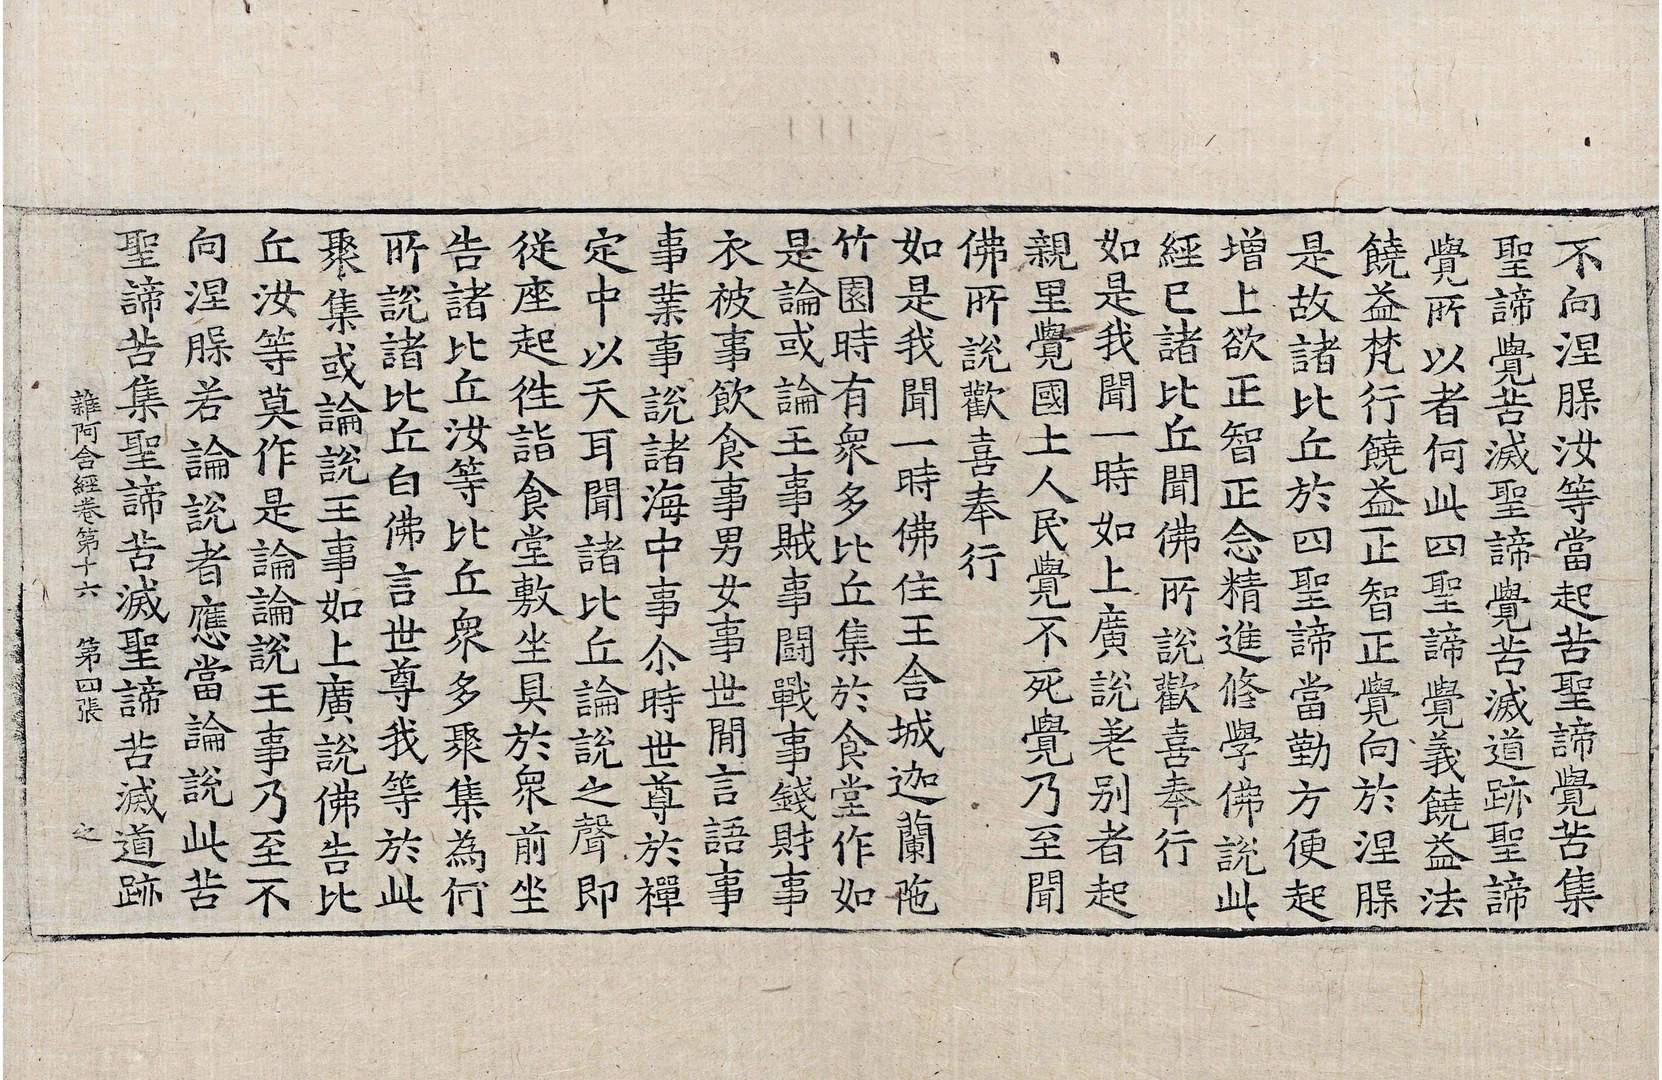 不向涅槃汝等當起苦聖諦覺苦集
聖諦覺苦滅聖諦覺苦滅道跡聖諦
覺所以者何此四聖諦覺義饒益法
饒益梵行饒益正智正覺向於涅槃
是故諸比丘於四聖諦當勤方便起
增上欲正智正念精進修學佛說此
經已諸比丘聞佛所說歡喜奉行
如是我聞一時如上廣說差別者起
親里覺國土人民覺不死覺乃至聞
佛所說歡喜奉行
如是我聞一時佛住王舍城迦蘭陁
竹園時有眾多比丘集於食堂作如
是論或論王事賊事鬪戰事錢財事
衣被事飲食事男女事世閒言語事
事業事說諸海中事尒時世尊於禪
定中以天耳聞諸比丘論說之聲即
從座起徃詣食堂敷坐具於眾前坐
告諸比丘汝等比丘眾多聚集為何
所說諸比丘白佛言世尊我等於此
聚集或論說王事如上廣說佛告比
丘汝等莫作是論論說王事乃至不
向涅槃若論說者應當論說此苦
聖諦苦集聖諦苦滅聖諦苦滅道跡
雜阿含經卷第十六 第四張 之